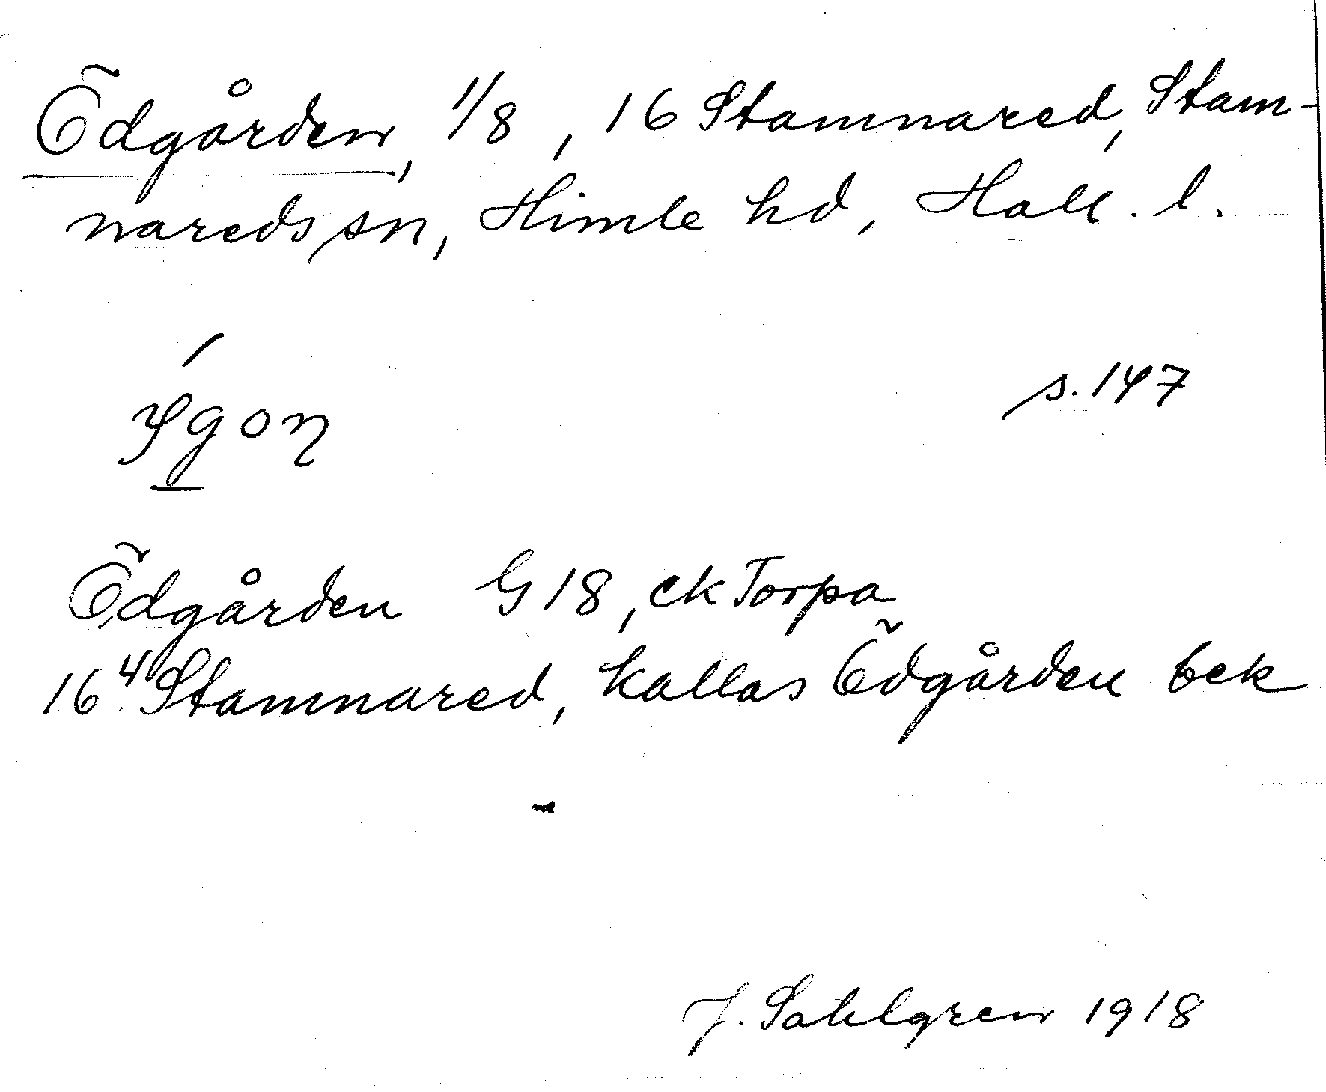 Ödgården, 1/8, 16 Stamnared, Stam-
nareds sn, Himle hd, Hall. l.
s. 147
Ödgården G 18, ek Torpa
16⁴ Stamnared, kallas Ödgården bek
J. Sahlgren 1918